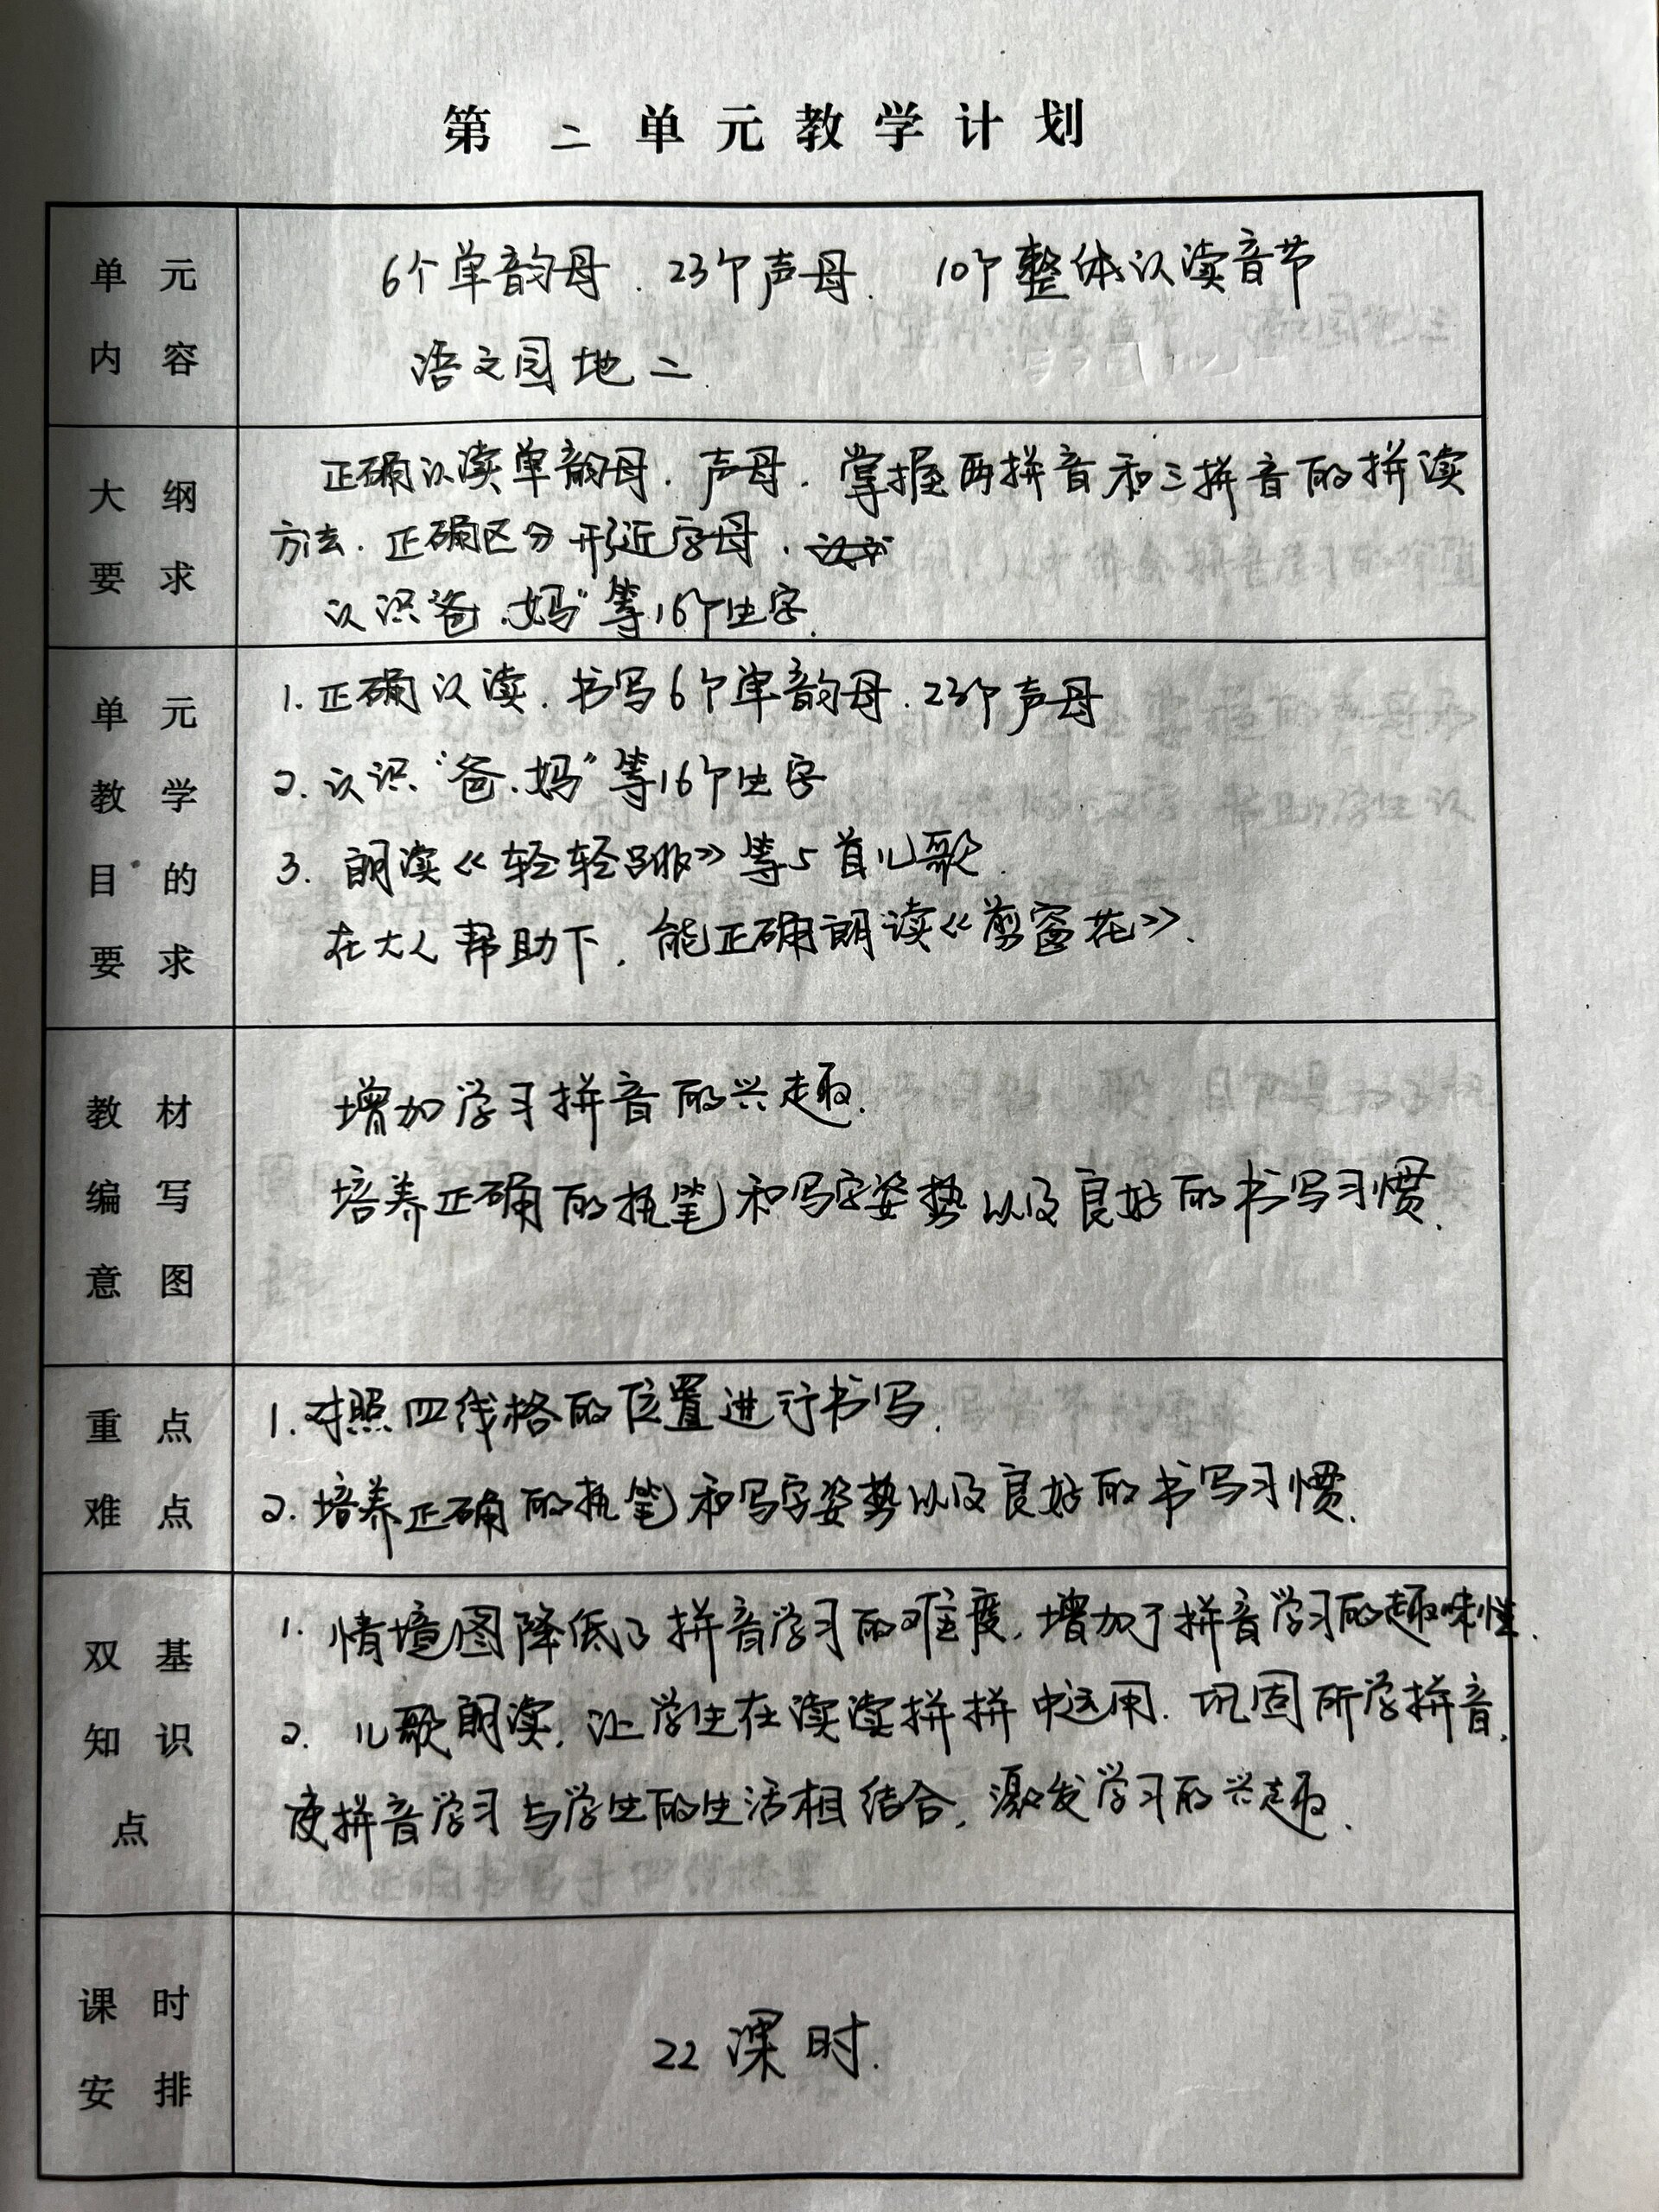 第二单元教学计划
单元
内容
6个单韵母、23个声母、10个整体认读音节
语文园地二.
大纲
要求
正确认读单韵母、声母、掌握两拼音和三拼音的拼读
方法.正确区分形近字母.
认识“爸、妈”等16个生字.
单元
教学
目的
要求
1.正确认读、书写6个单韵母、23个声母
2.认识“爸、妈”等16个生字
3.朗读《轻轻跳》等5首儿歌.
在大人帮助下,能正确朗读《剪窗花》.
教材
编写
意图
增加学习拼音的兴趣.
培养正确的执笔和写字姿势以及良好的书写习惯.
重点
难点
1.对照四线格的位置进行书写.
2.培养正确的执笔和写字姿势以及良好的书写习惯.
双基
知识
点
1.情境图降低了拼音学习的难度,增加了拼音学习的趣味性.
2.儿歌朗读,让学生在读读拼拼中运用、巩固所学拼音,
使拼音学习与学生的生活相结合,激发学习的兴趣.
课时
安排
22课时.